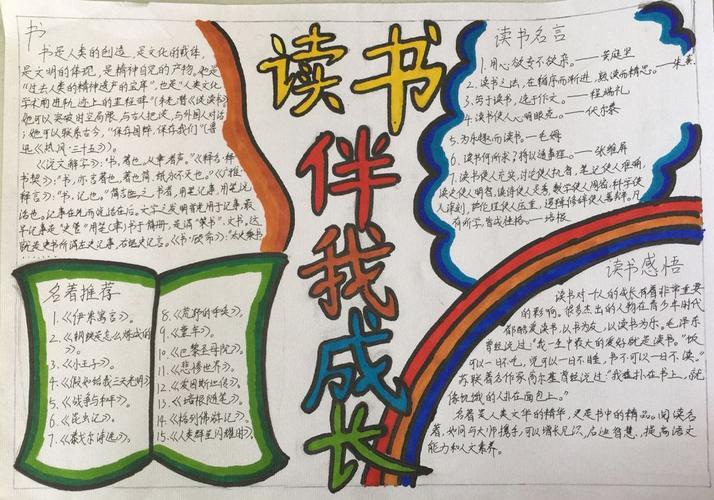 读书
伴我成长
书
书是人类的创造,是文化的载体,
是文明的体现,是精神自觉的产物。
“过去人类的精神遗产的宝库”,也是“人类文化
学术前进队途上的里程碑”(朱光潜《谈读书》
她可以突破时空局限,与古人把谈,与外国人对话
;她可以联系古今,“保存国粹,保存我们”(鲁
迅《热风·三十五》)。
《说文解字》:“书,著也。从聿者声。”《释名·释
书契》:“书,亦言著也,著也简、纸永不灭也。”
释言》:“书,记也。”
早记事是“史官”用笔
名著推荐
1.《伊米寓言》。
2.《钢铁是怎么炼成的
》。
3.《小王子》。
4.《假如给我三天光明》
5.《战争与和平》。
6.《昆虫记》。
7.《泰戈尔诗选》。
8.《荒野的呼唤》。
9.《童年》。
10.《巴黎圣母院》。
11.《悲惨世界》。
12.《爱因斯坦传》。
13.《培根随笔》。
14.《格列佛游记》。
15.《人类群星闪耀时》。
读书名言
1.用心欲专不欲杂。——黄庭坚
2.读书之法,在循序而渐进,熟读而精思。——朱熹
3.劳于读书,逸于作文。——程端礼
4.读书使人心明眼亮。——伏尔泰
5.为乐趣而读书。——毛姆
6.读书何所求?将以通事理。——张维屏
7.读书使人充实,讨论使人机智,笔记使人准确,
读史使人明智,读诗使人灵秀,数学使人周密,科学使
人深刻,伦理使人庄重,逻辑修辞使人善辩。凡
有所学,皆成性格。——培根
读书感悟
读书对一个人的成长有着非常重要
的影响。很多杰出的人物在青少年时代
都酷爱读书,以书为友,以读书为乐。毛泽东
曾经说过“我一生中最大的爱好就是读书。”“饭
可以一日不吃,觉可以一日不睡,书不可以一日不读。”
苏联著名作家高尔基曾经说过“我扑在书上,就
像饥饿的人扑在面包上。”
名著是人类文华的精华,更是书中的精品。阅读名
著,如同与大师携手,可以增长见识,启迪智慧,提高语文
能力和人文素养。